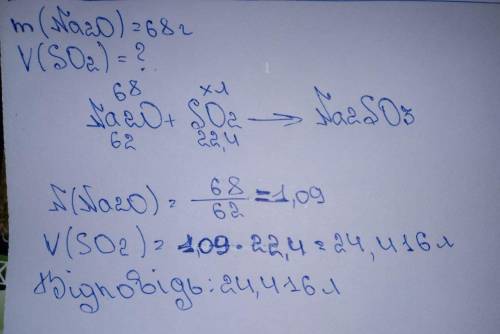 m(Na2O)=68г
V(SO2)=?
68 x л
Na2O + SO2 → Na2SO3
62 22,4
N(Na2O)= 68/62 =1,09
V(SO2)= 1,09 · 22,4 = 24,416л
Відповідь: 24,416л